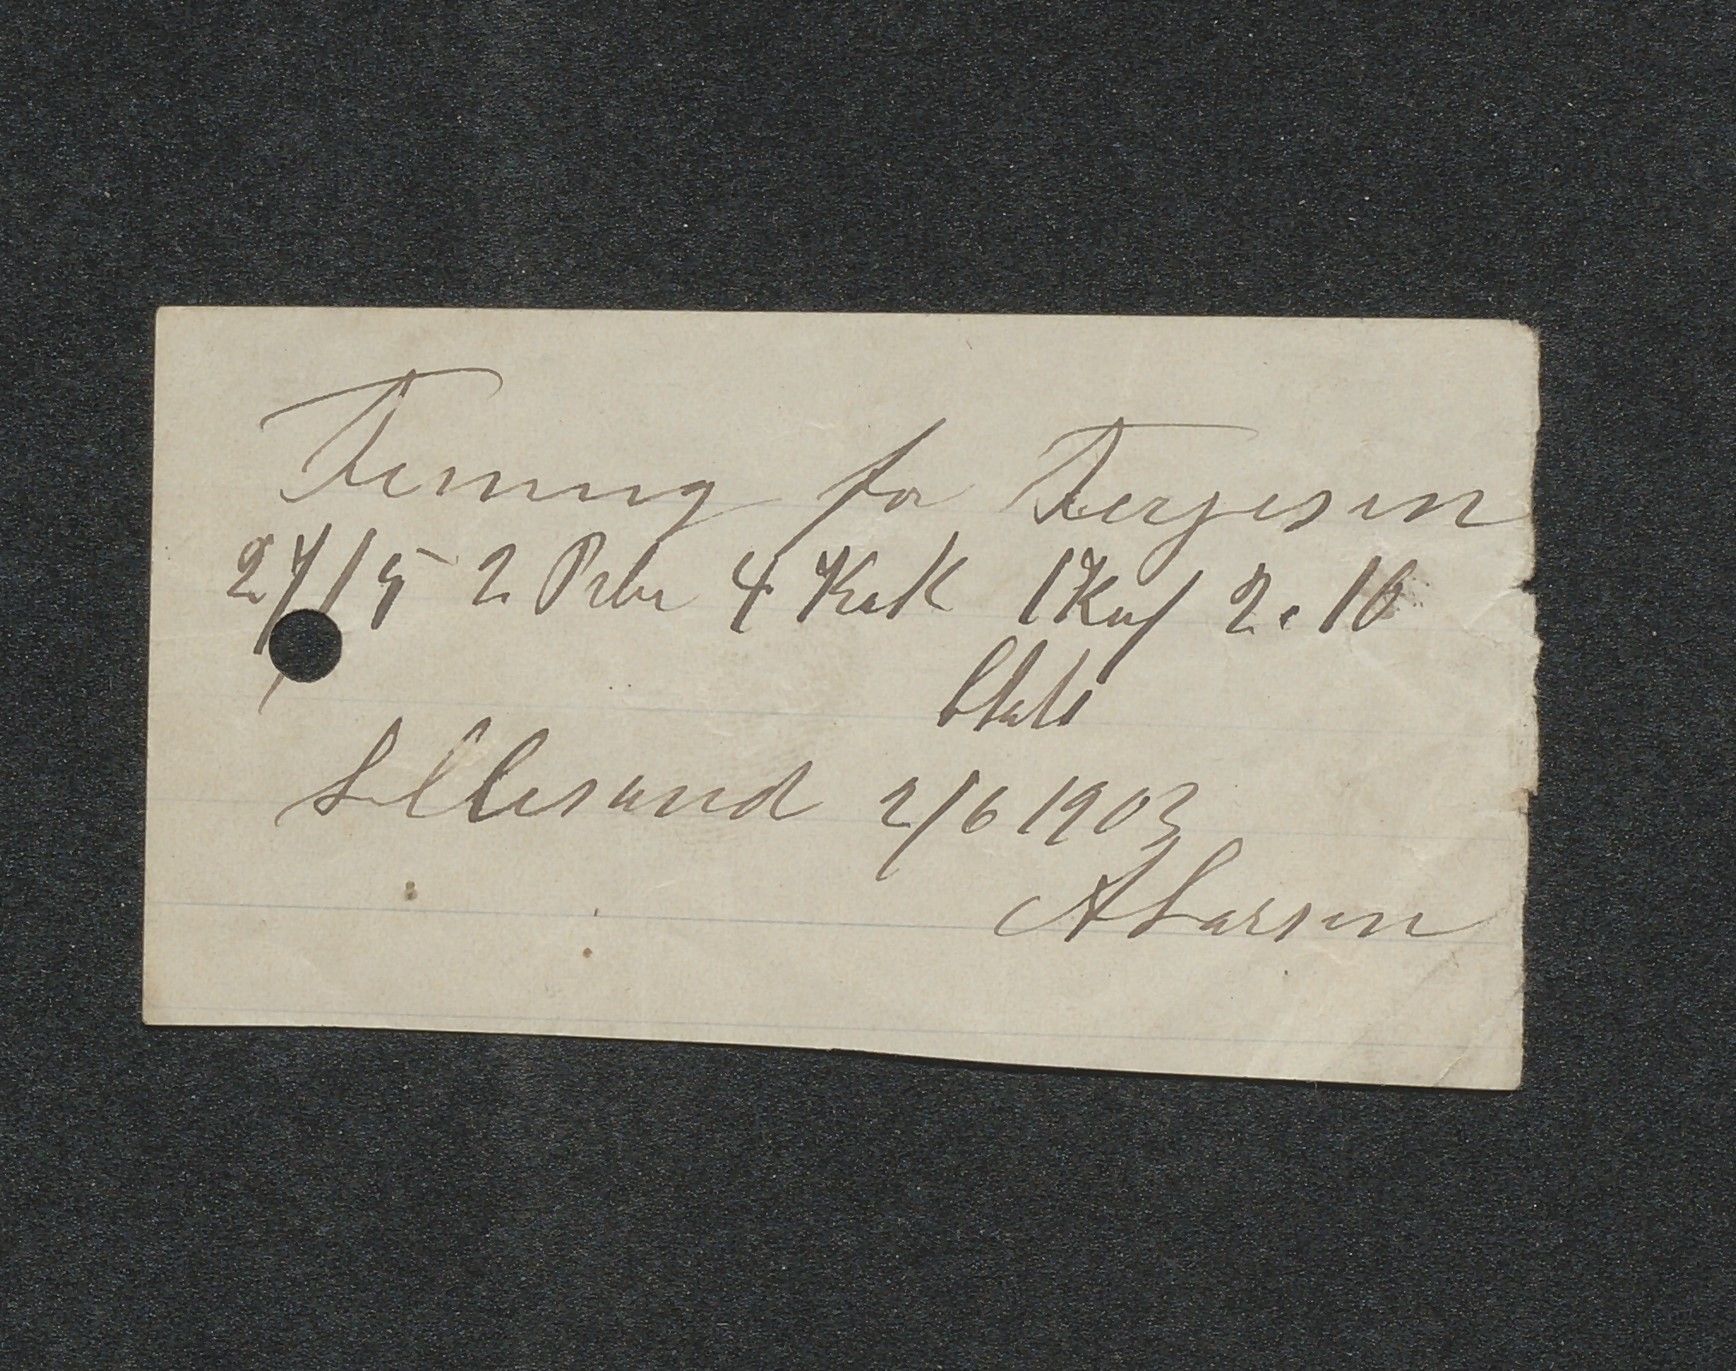 Regning for Tergesen
27/5 2 Peber 4 Kak 1 Kaf 2.10
Betalt
Lillesand 2/6 1903
A Larsen